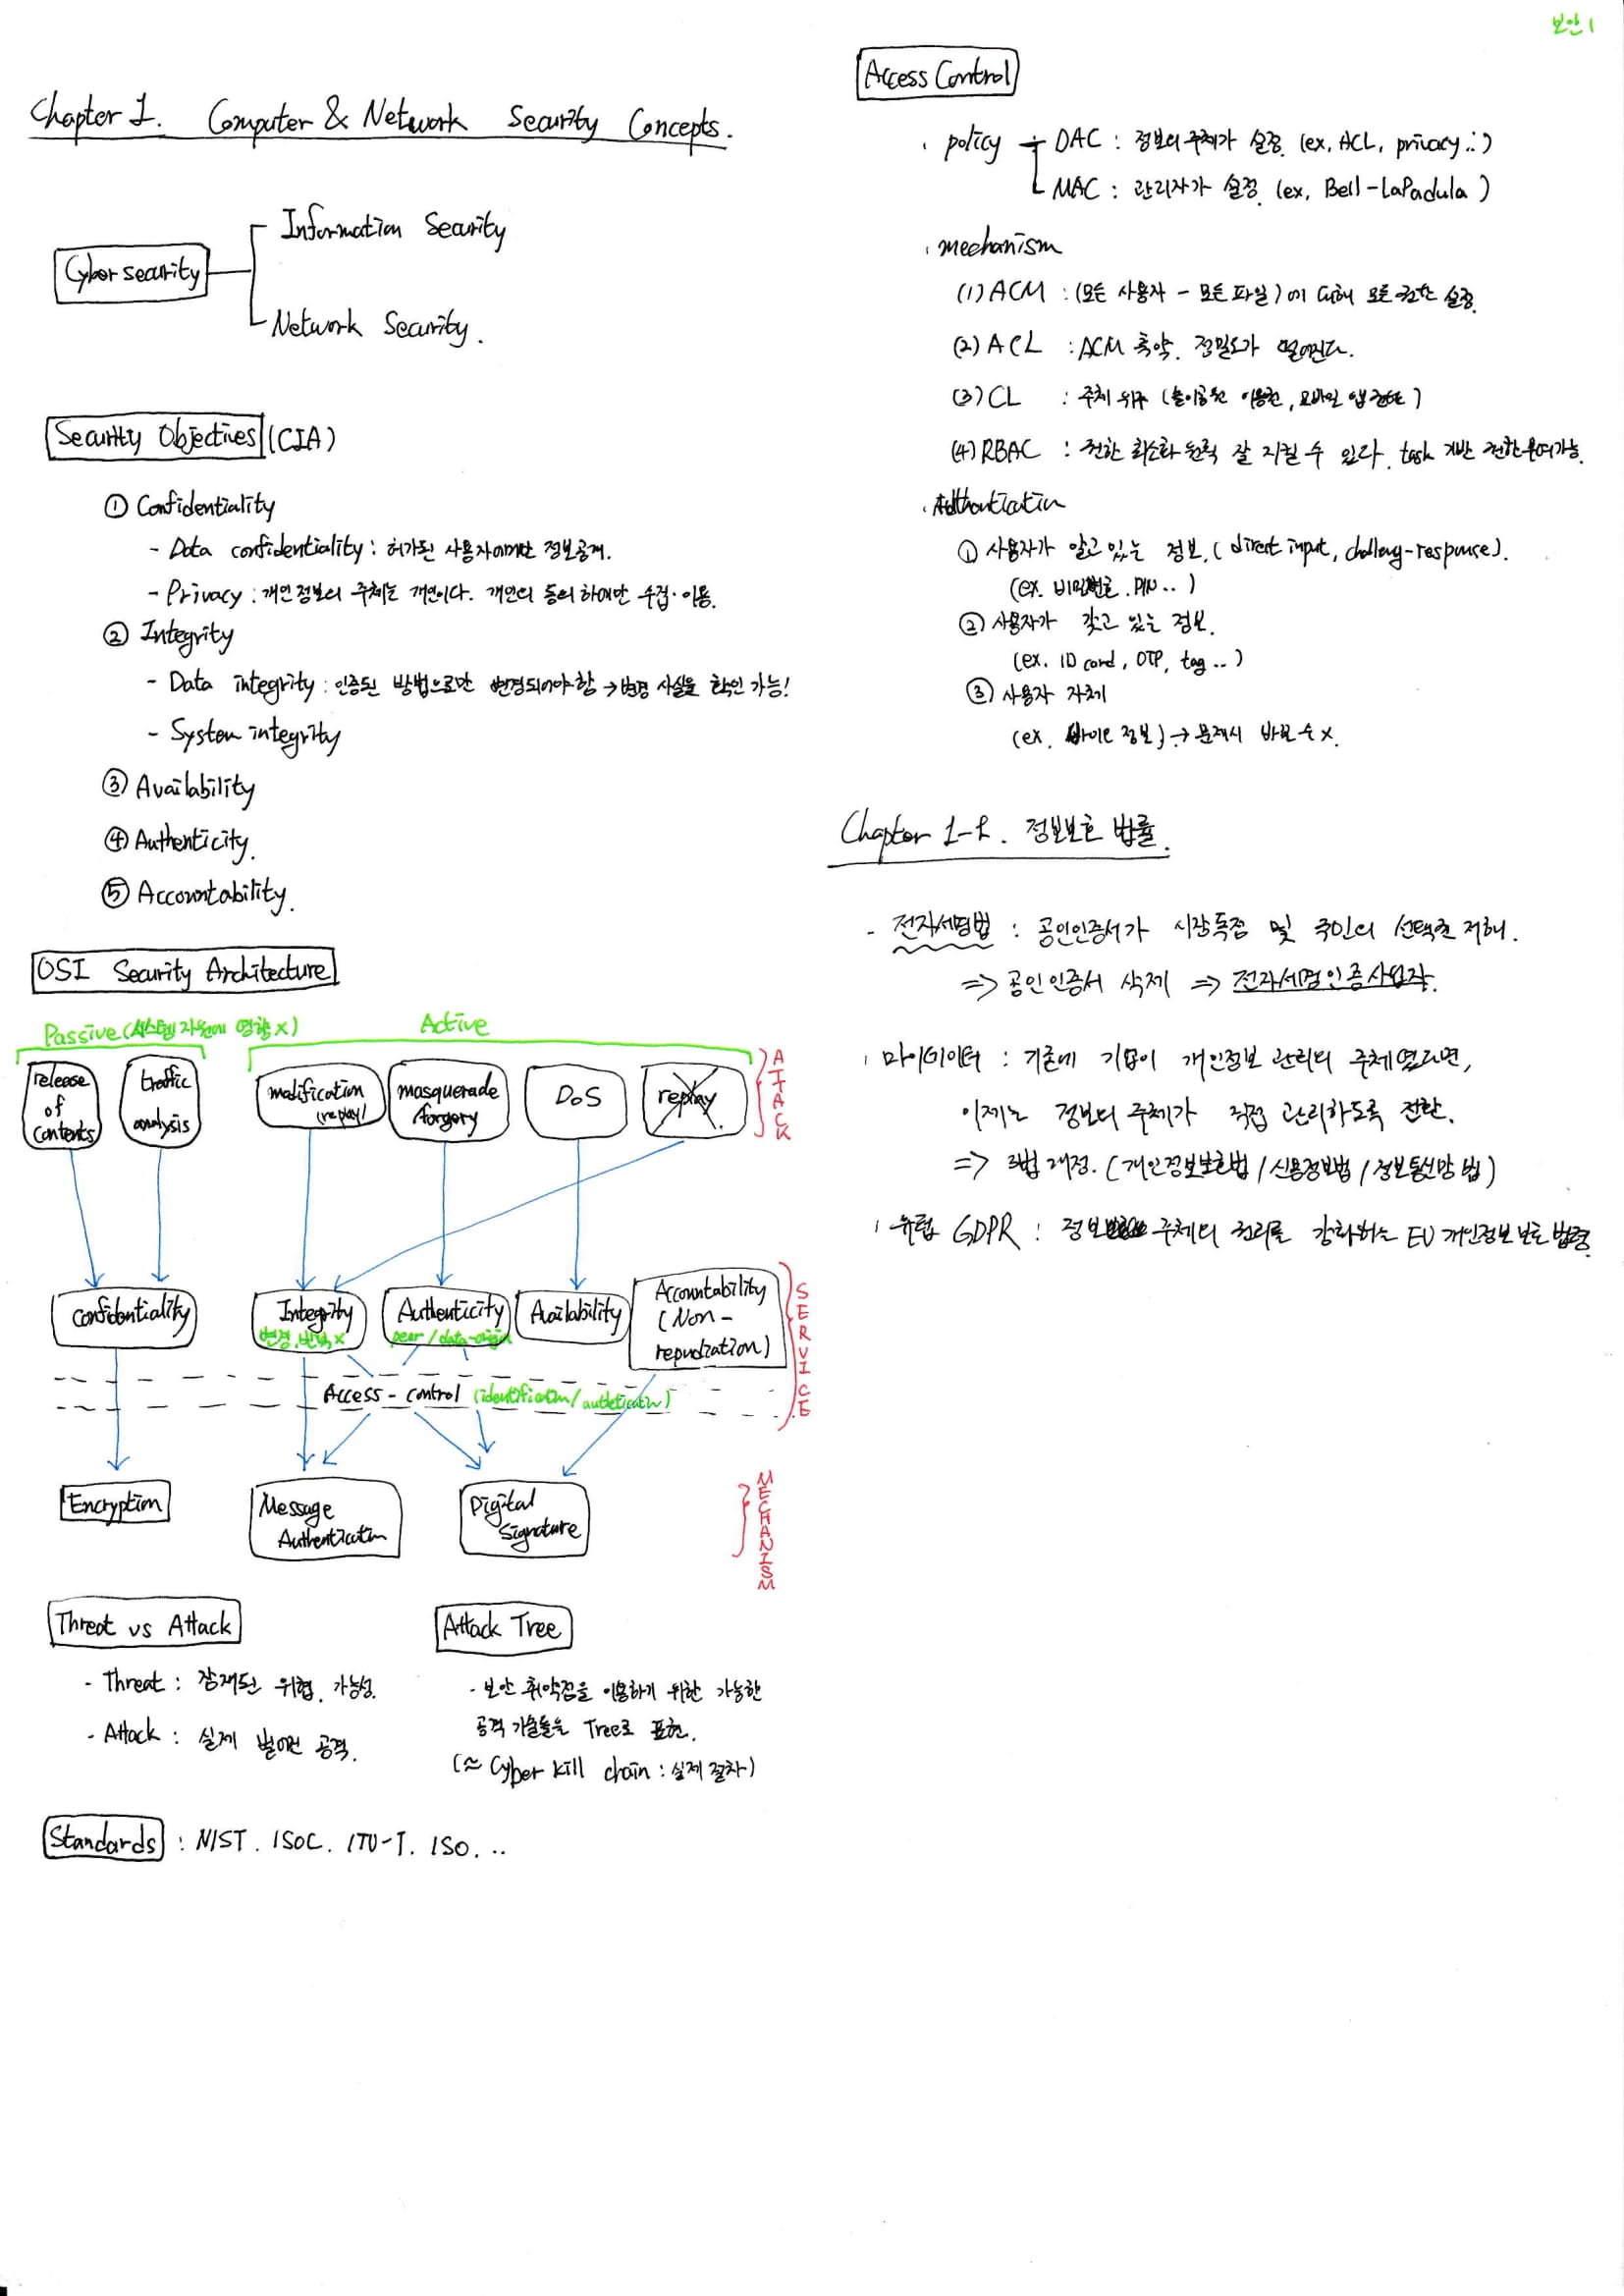 보안 1
Chapter 1. Computer & Network Security Concepts.
Cybersecurity
Information Security
Network Security.
Security Objectives (CIA)
① Confidentiality
- Data confidentiality : 허가된 사용자에게만 정보공개.
- Privacy : 개인정보의 주체는 개인이다. 개인의 동의 하에만 수집·이용.
② Integrity
- Data integrity : 인증된 방법으로만 변경되어야 함 → 변경 사실을 확인 가능!
- System integrity
③ Availability
④ Authenticity.
⑤ Accountability.
OSI Security Architecture
Passive (시스템 자원에 영향 x)
Active
release of contents
traffic analysis
modification (replay)
masquerade forgery
DoS
replay
ATTACK
Confidentiality
Integrity
변경, 반복 x
Authenticity
peer / data-origin
Availability
Accountability (Non-repudiation)
SERVICE
Access-control (identification/
Encryption
Message Authentication
Digital Signature
MECHANISM
Threat vs Attack
- Threat : 잠재된 위협. 가능성.
- Attack : 실제 벌어진 공격.
Attack Tree
- 보안 취약점을 이용하기 위한 가능한
공격 기술들을 Tree로 표현.
(≈ Cyber kill chain : 실제 절차)
Standards : NIST. ISOC. ITU-T. ISO. ..
Access Control
· policy
DAC : 정보의 주체가 설정. (ex, ACL, privacy..)
MAC : 관리자가 설정. (ex, Bell-LaPadula)
· mechanism
(1) ACM : (모든 사용자 - 모든 파일)에 대해 모든 권한 설정.
(2) ACL : ACM 축약. 정밀도가 떨어진다.
(3) CL : 주체 위주 (놀이공원 이용권, 모바일 앱 권한)
(4) RBAC : 권한 최소화 원칙 잘 지킬 수 있다. task 기반 권한부여가능.
· Authentication
① 사용자가 알고 있는 정보. (direct input, challeng-response).
(ex. 비밀번호. PIN..)
② 사용자가 갖고 있는 정보.
(ex. ID card, OTP, tag..)
③ 사용자 자체
(ex. 바이오 정보) → 문제시 바꿀 수 x.
Chapter 1-2. 정보보호 법률.
- 전자서명법 : 공인인증서가 시장독점 및 국민의 선택권 저해.
=> 공인인증서 삭제 => 전자서명인증사업자.
· 마이데이터 : 기존에 기업이 개인정보 관리의 주체였다면,
이제는 정보의 주체가 직접 관리하도록 전환.
=> 3법 개정. (개인정보보호법 / 신용정보법 / 정보통신망법)
· 유럽 GDPR : 정보 주체의 권리를 강화하는 EU 개인정보 보호 법령.